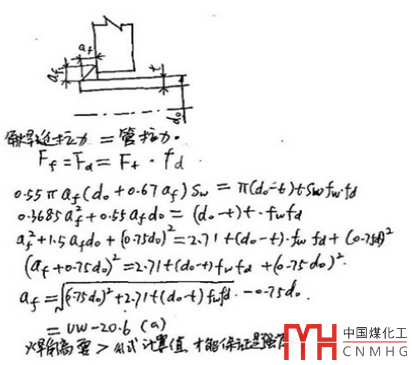 af
af
t
do
角焊缝拉力 = 管拉力.
Ff = Fd = Ft · fd
0.55π af (do + 0.67 af) Sw = π(do - t) t Sw fw · fd
0.3685 af² + 0.55 af do = (do - t) t · fw fd
af² + 1.5 af do + (0.75do)² = 2.71 t (do - t) · fw fd + (0.75d)²
(af + 0.75do)² = 2.71 t (do - t) fw fd + (0.75do)²
af = √(0.75do)² + 2.71 t (do - t) fwfd - 0.75do
= UW-20.6 (a)
焊角高要 > 公式计算值 才能保证是强
MH 中国煤化工
CNMHG